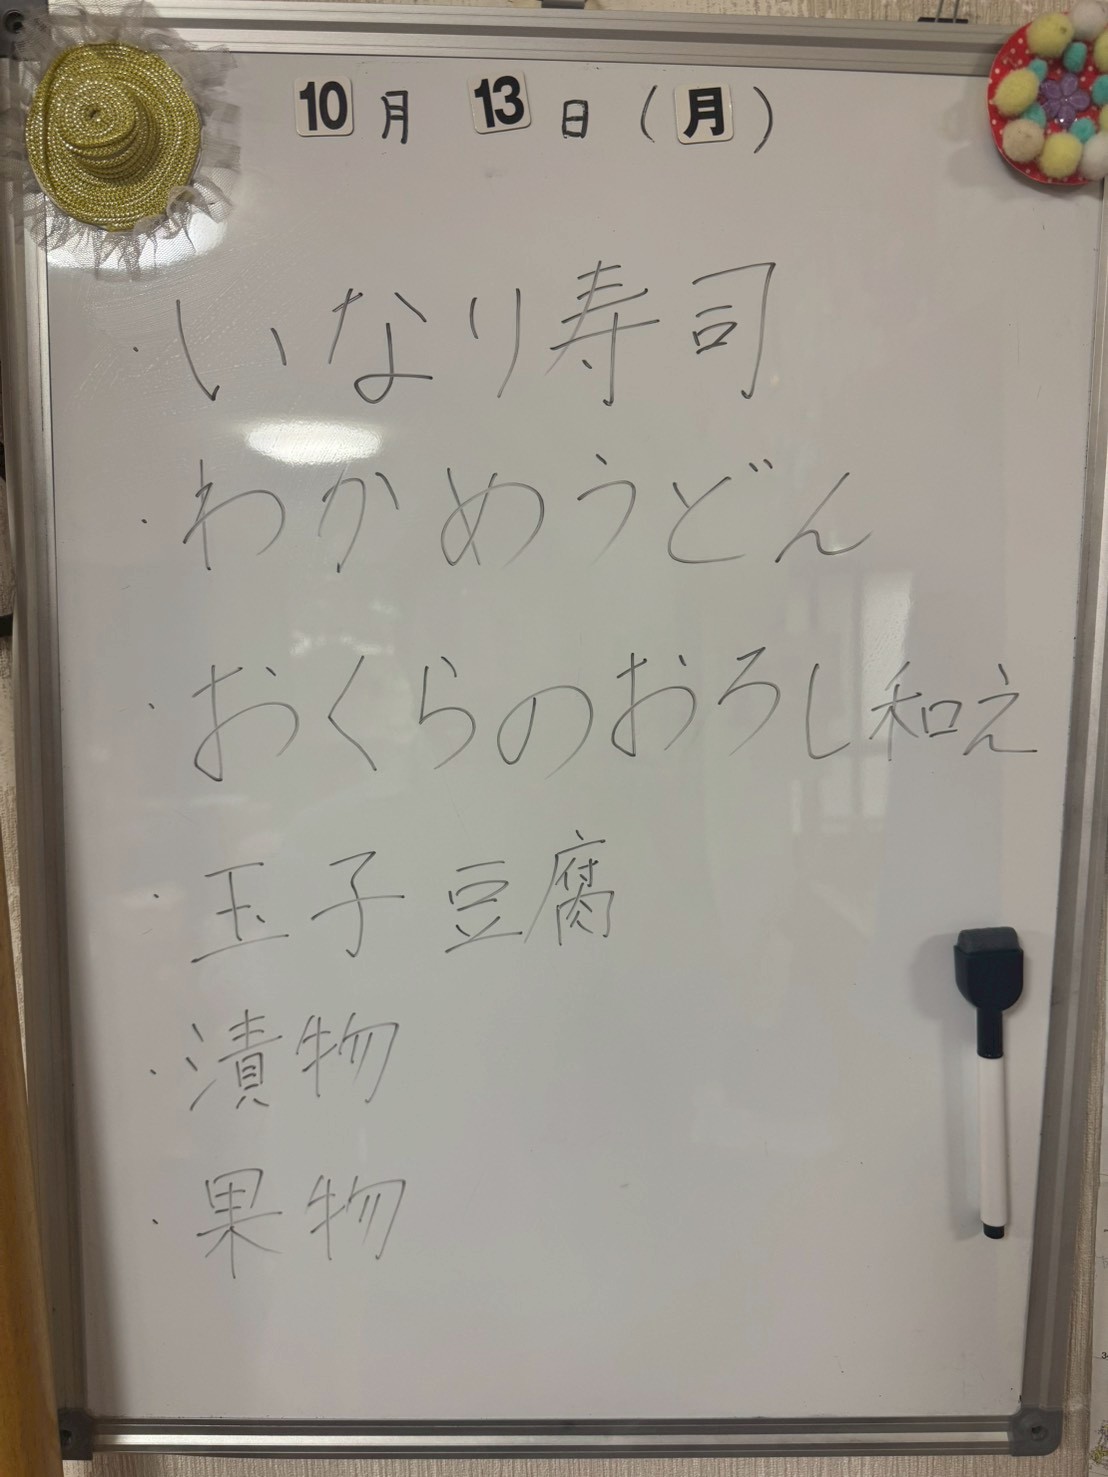 10月 13日(月)
・いなり寿司
・わかめうどん
・おくらのおろし和え
・玉子豆腐
・漬物
・果物